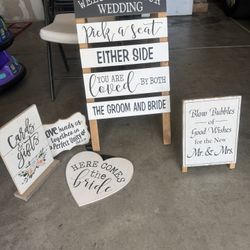 WEDDING
Pick a seat
EITHER SIDE
YOU ARE
loved BY BOTH
THE GROOM AND BRIDE
Cards
&
gifts
love binds us
together in
Perfect
HERE COMES
the
bride
Blow Bubbles
of
Good Wishes
for the New
Mr. & Mrs.